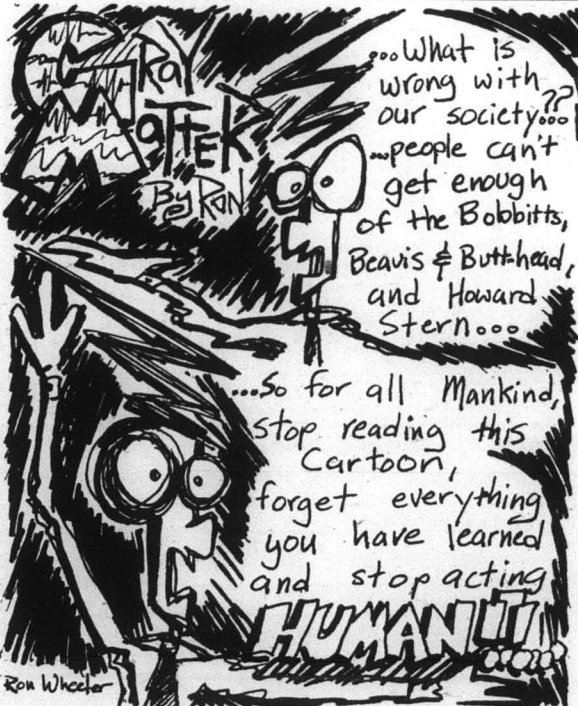 GRAY
MATTER
By RON
...What is
wrong with
our society...??
...people can't
get enough
of the Bobbitts,
Beavis & Butt-head,
and Howard
Stern...
...So for all Mankind,
stop reading this
Cartoon,
forget everything
you have learned
and stop acting
HUMAN!!
Ron Wheeler